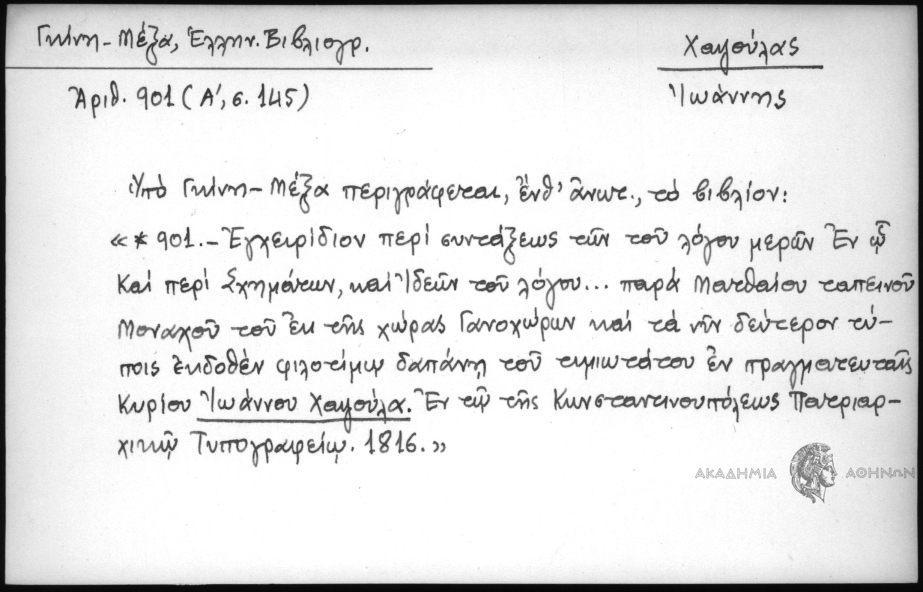 Γκίνη-Μέξα, Ἑλλην. Βιβλιογρ.
Χαμούλας
Ἀριθ. 901 (Α', σ. 145)
Ἰωάννης
Ὑπό Γκίνη-Μέξα περιγράφεται, ἔνθ' ἄνωτ., τό βιβλίον:
« * 901. - Ἐγχειρίδιον περί συντάξεως τῶν τοῦ λόγου μερῶν Ἐν ᾧ
καί περί Σχημάτων, καί Ἰδεῶν τοῦ λόγου... παρά Ματθαίου ταπεινοῦ
Μοναχοῦ τοῦ ἐκ τῆς χώρας Γανοχώρων καί τά νῦν δεύτερον τύ-
ποις ἐκδοθέν φιλοτίμῳ δαπάνῃ τοῦ τιμιωτάτου ἐν πραγματευταῖς
Κυρίου Ἰωάννου Χαμούλα. Ἐν τῷ τῆς Κωνσταντινουπόλεως Πατριαρ-
χικῷ Τυπογραφείῳ. 1816.»
ΑΚΑΔΗΜΙΑ ΑΘΗΝΩΝ